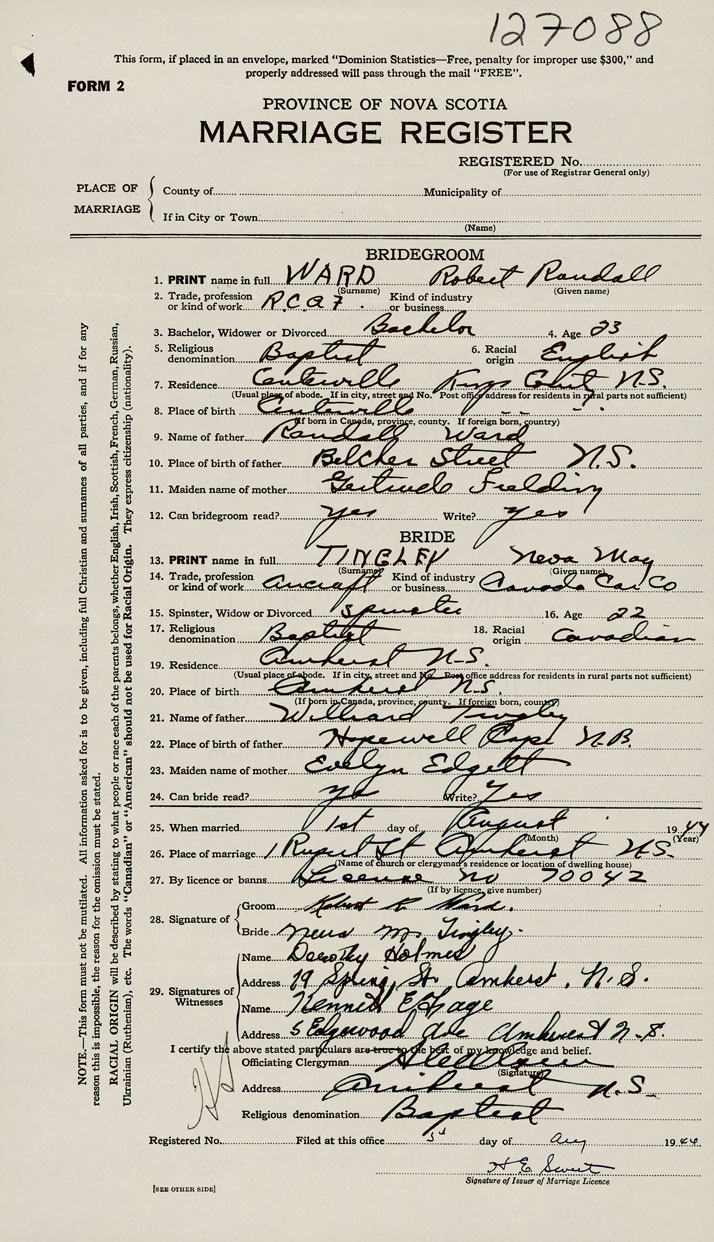 127088
This form, if placed in an envelope, marked "Dominion Statistics—Free, penalty for improper use $300," and
properly addressed will pass through the mail "FREE".
FORM 2
PROVINCE OF NOVA SCOTIA
MARRIAGE REGISTER
REGISTERED No.
(For use of Registrar General only)
PLACE OF MARRIAGE
County of Municipality of
If in City or Town
(Name)
BRIDEGROOM
1. PRINT name in full WARD Robert Randall
(Surname) (Given name)
2. Trade, profession or kind of work R.C.A.F. Kind of industry or business
3. Bachelor, Widower or Divorced Bachelor 4. Age 23
5. Religious denomination Baptist 6. Racial origin English
7. Residence Centerville Kings N.S.
(Usual place of abode. If in city, street and No. Post office address for residents in rural parts not sufficient)
8. Place of birth Centerville " " "
(If born in Canada, province, county. If foreign born, country)
9. Name of father Randall Ward
10. Place of birth of father Belcher Street N.S.
11. Maiden name of mother Gertrude Fielding
12. Can bridegroom read? yes Write? yes
BRIDE
13. PRINT name in full TINGLEY Neva May
(Surname) (Given name)
14. Trade, profession or kind of work aircraft Kind of industry or business Canada Car Co
15. Spinster, Widow or Divorced Spinster 16. Age 22
17. Religious denomination Baptist 18. Racial origin Canadian
19. Residence Amherst N.S.
(Usual place of abode. If in city, street and No. Post office address for residents in rural parts not sufficient)
20. Place of birth Amherst N.S.
(If born in Canada, province, county. If foreign born, country)
21. Name of father Williard Tingley
22. Place of birth of father Hopewell Cape N.B.
23. Maiden name of mother Evelyn Edgett
24. Can bride read? yes Write? Yes
25. When married 1st day of August 1944
(Month) (Year)
26. Place of marriage 1 Rupert St Amherst N.S.
(Name of church or clergyman's residence or location of dwelling house)
27. By licence or banns License No 70042
(If by licence, give number)
28. Signature of
Groom Robert R. Ward.
Bride Neva M. Tingley.
29. Signatures of Witnesses
Name Dorothy Holmes
Address 79 Spring St. Amherst, N.S.
Name Kenneth E.
Address 5 Edgewood Ave Amherst N.S.
I certify the above stated particulars are true to the best of my knowledge and belief.
Officiating Clergyman
(Signature)
Address Amherst N.S.
Religious denomination Baptist
Registered No. Filed at this office 5 day of Aug 1944
H E Sweet
Signature of Issuer of Marriage Licence
[SEE OTHER SIDE]
NOTE.—This form must not be mutilated. All information asked for is to be given, including full Christian and surnames of all parties, and if for any
reason this is impossible, the reason for the omission must be stated.
RACIAL ORIGIN will be described by stating to what people or race each of the parents belongs, whether English, Irish, Scottish, French, German, Russian,
Ukrainian (Ruthenian), etc. The words "Canadian" or "American" should not be used for Racial Origin. They express citizenship (nationality).